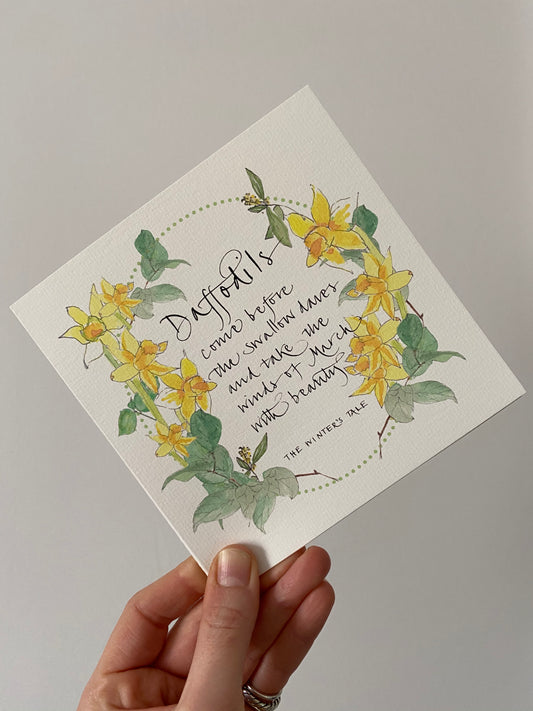 Daffodils
come before
the swallow dares
and take the
winds of March
with beauty
THE WINTER'S TALE